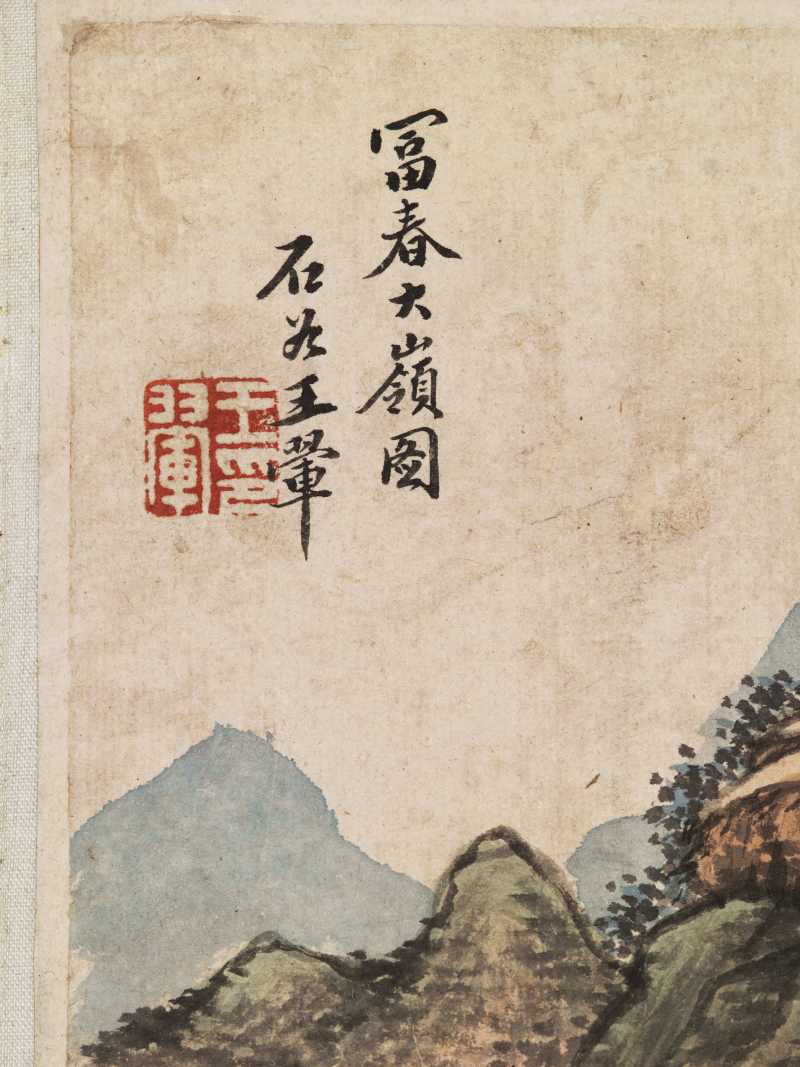 冨春大嶺圖
石谷王翬
王印
翬